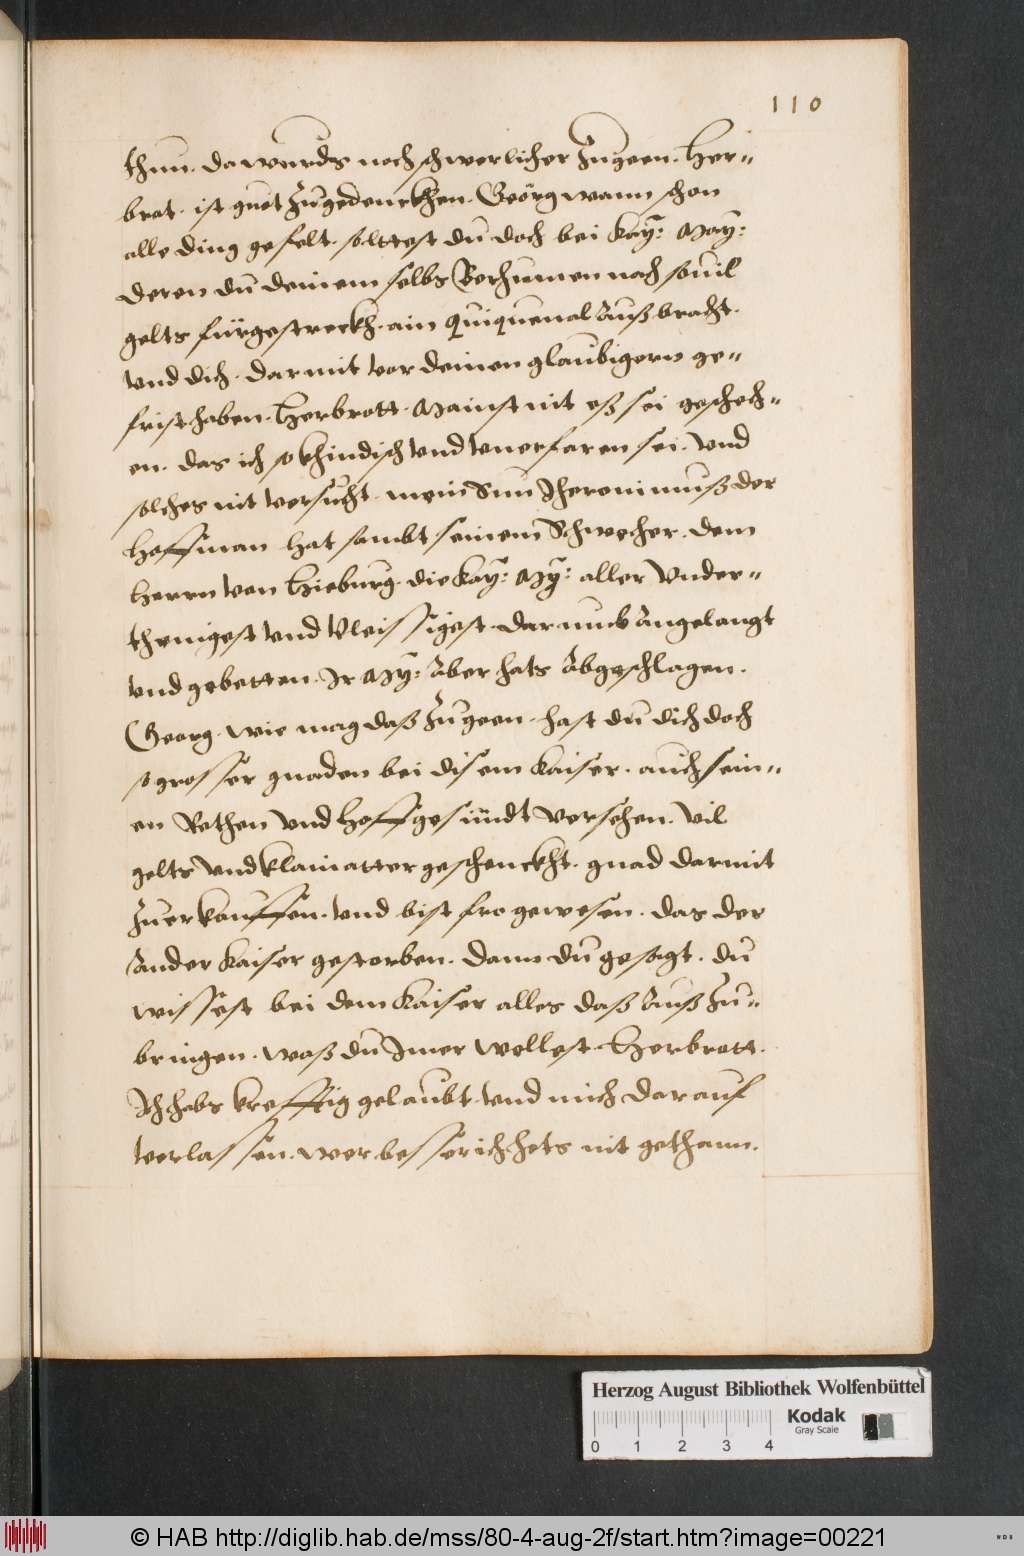 110
thun. da wurds noch schwerlicher Zugeen. Her-
brot. ist guot Zugedenckhen. Geörg wann schon
alle ding gefelt. solttest du doch bei Kay: May:
deren du deinem selbs Berhuemen nach souil
gelts fürgestreckh. ain quiquenal Außbracht.
vnd dich. darmit vor deinen glaubigern ge-
frist haben. Herbrott. Mainst nit eß sei geschech-
en. das ich so khindisch vnd vnerfaren sei. vnd
solches nit versucht. mein Sun Jheronimuß der
Hoffman hat sambt seinem Schwecher. dem
herrn von Hieburg. die Kay: My: aller vnder-
thenigest vnd Vleissigest. darumb Angelangt
vnd gebetten. Ir My: Aber hats Abgeschlagen.
Georg. wie mag daß Zugeen. hast du dich doch
so grosser gnaden bei disem Kaiser. auch sein-
en Rethen vnd Hoffgesündt versehen. vil
gelts vnd klainatter geschenckht. gnad darmit
Zuerkauffen. vnd bist fro gewesen. das der
Ander Kaiser gestorben. dann du gesagt. du
wissest bei dem Kaiser alles daß Auß Zu-
bringen. waß du Imer wellest. Herbrott.
Ich habs krefftig gelaubt. vnd mich darauf
verlassen. wer besser ich hets nit gethann.
Herzog August Bibliothek Wolfenbüttel
Kodak
Gray Scale
0 1 2 3 4
© HAB http://diglib.hab.de/mss/80-4-aug-2f/start.htm?image=00221